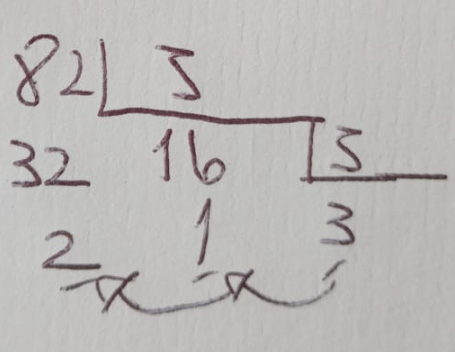 82 5
32 16 5
2 1 3